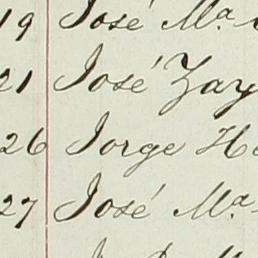 19 José Mª
21 José Zay
26 Jorge He
27 José Mª